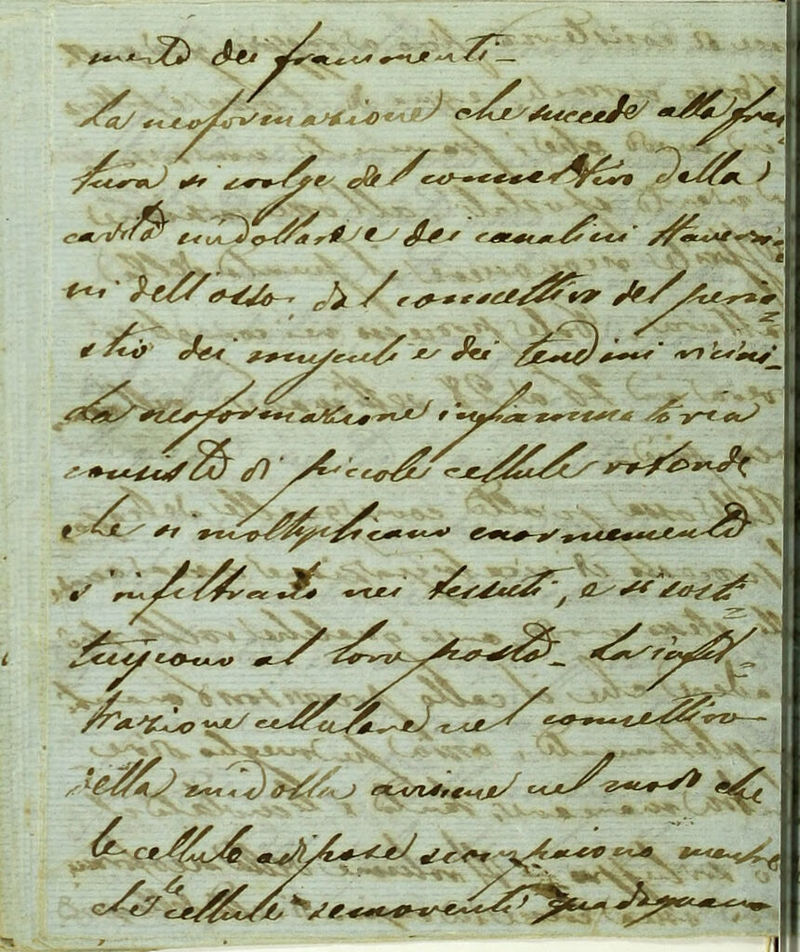 mento dei frammenti –
La neoformazione che succede alla frat=
tura si svolge dal connettivo della
cavità midollare e dei canalini Haversia=
ni dell'osso, dal connettivo del perio=
stio dei muscoli e dei tendini vicini –
La neoformazione infiammatoria
consiste di piccole cellule rotonde
che si moltiplicano enormemente
s'infiltrano nei tessuti, e si sosti=
tuiscono al loro posto – La infil=
trazione cellulare nel connettivo
della midolla avviene nel modo che
le cellule adipose scompaiono mentre
che le cellule semoventi guadagnano